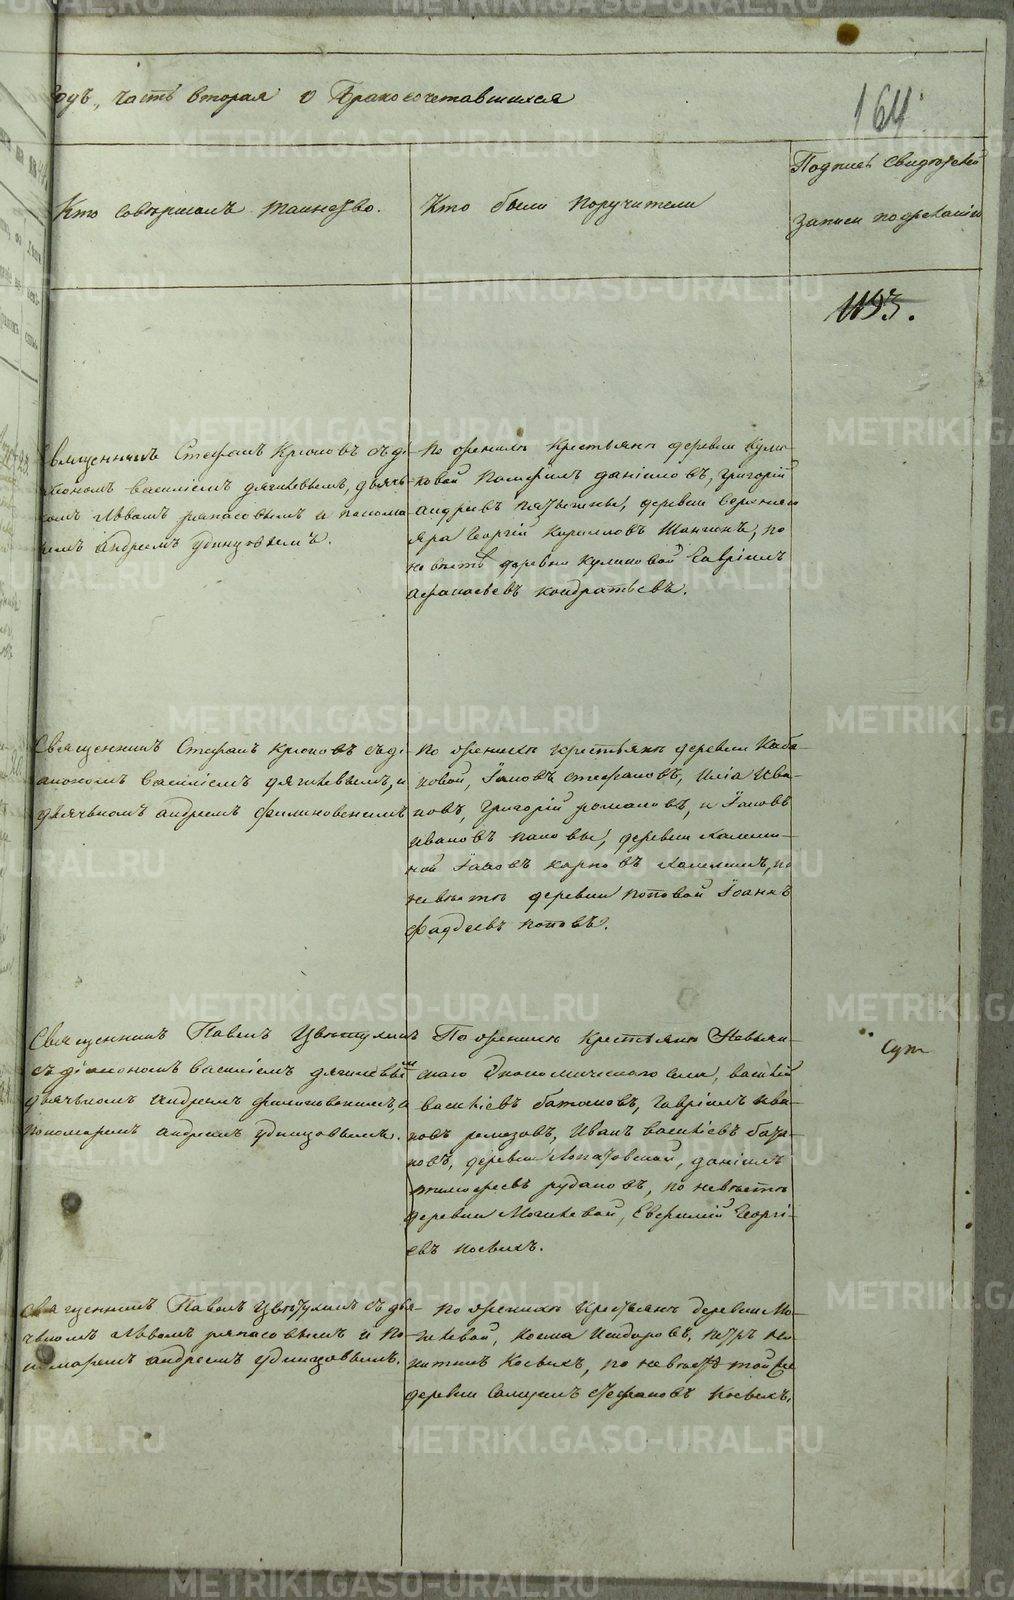 одъ, часть вторая о Бракосочетавшихся
164
Кто совершалъ таинство.
Кто были поручители
Подпись свидѣтелей
записи по желанію
1193.
Священникъ Стефанъ Крюковъ съ ді-
акономъ василіемъ дягилевымъ, дьячь-
комъ львомъ ряпасовымъ и понома
ремъ андреемъ удинцовымъ.
по женихѣ крестьяне деревни кули-
ковой даніловъ, григорій
андреевъ деревни
яра Георгій Кириловъ по
невѣстѣ деревни куликовой Гавріилъ
афанасьевъ кондратьевъ.
Священникъ Стефанъ крюковъ съ ді-
акономъ василіемъ дягилевымъ, и
дьячькомъ андреемъ филиковскимъ
по женихѣ крестьяне деревни каба-
ковой, Іаковъ стефановъ, илія ива-
новъ, григорій романовъ, и Іаковъ
ивановъ поповы, деревни калини-
ной Іаковъ карповъ калининъ, по
невѣстѣ деревни поповой Іоаннъ
фаддеевъ поповъ.
Священникъ Павелъ Цвѣтухинъ
съ діакономъ василіемъ дягилевымъ
дьячькомъ андреемъ филиковскимъ, и
пономаремъ андреемъ удинцовымъ.
По женихѣ крестьяне Невьян-
скаго Экономическаго села, василій
василіевъ батаковъ, гавріилъ ива-
новъ ремезовъ, Иванъ василіевъ бата-
ковъ, деревни даніилъ
тимофеевъ рудаковъ, по невѣстѣ
деревни Могилевой, Евфимій Георгі-
евъ косыхъ.
Сут
Священникъ Павелъ Цвѣтухинъ съ дья-
чькомъ львомъ ряпасовымъ и по
номаремъ андреемъ удинцовымъ.
по женихѣ крестьяне деревни Мо-
гилевой, косма Исидоровъ, петръ ни-
китинъ Косыхъ, по невѣстѣ той же
деревни Самуилъ стефановъ Косыхъ.
METRIKI.GASO-URAL.RU